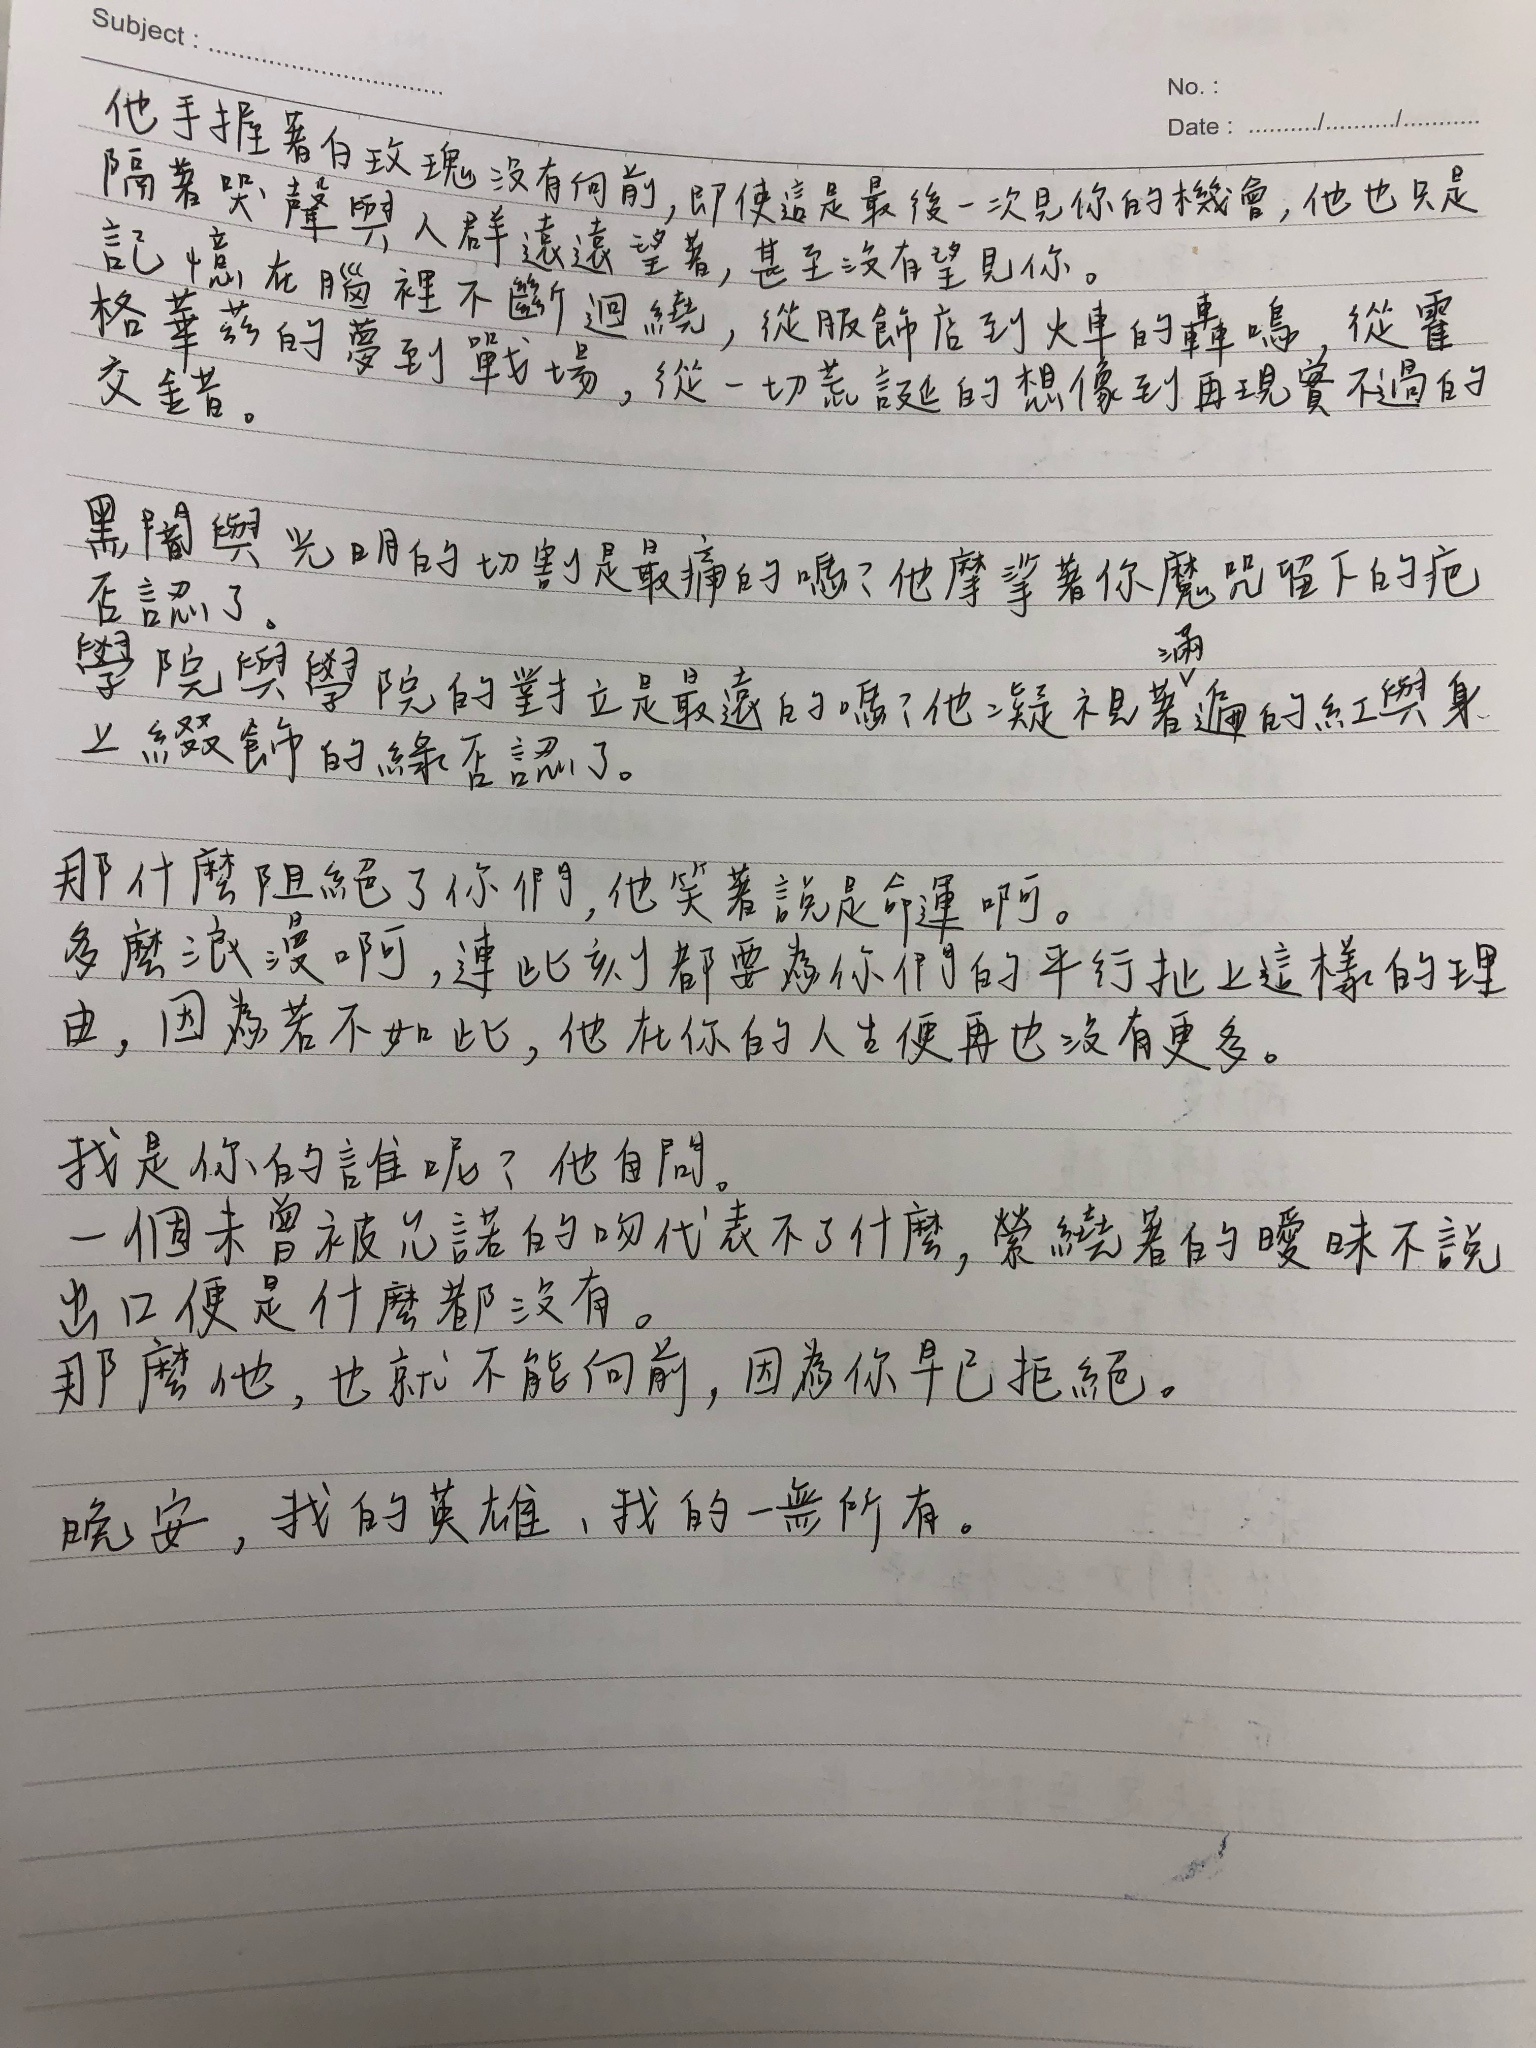 Subject :
No. :
Date : ........../........../...........
他手握著白玫瑰沒有向前,即使這是最後一次見你的機會,他也只是
隔著哭聲與人群遠遠望著,甚至沒有望見你。
記憶在腦裡不斷迴繞,從服飾店到火車的轟鳴,從霍
格華茲的夢到戰場,從一切荒誕的想像到再現實不過的
交錯。
黑闇與光明的切割是最痛的嗎?他摩挲著你魔咒留下的疤
否認了。
學院與學院的對立是最遠的嗎?他凝視著滿遍的紅與身
上綴飾的綠否認了。
那什麼阻絕了你們,他笑著說是命運啊。
多麼浪漫啊,連此刻都要為你們的平行扯上這樣的理
由,因為若不如此,他在你的人生便再也沒有更多。
我是你的誰呢?他自問。
一個未曾被允諾的吻代表不了什麼,縈繞著的曖昧不說
出口便是什麼都沒有。
那麼他,也就不能向前,因為你早已拒絕。
晚安,我的英雄、我的一無所有。